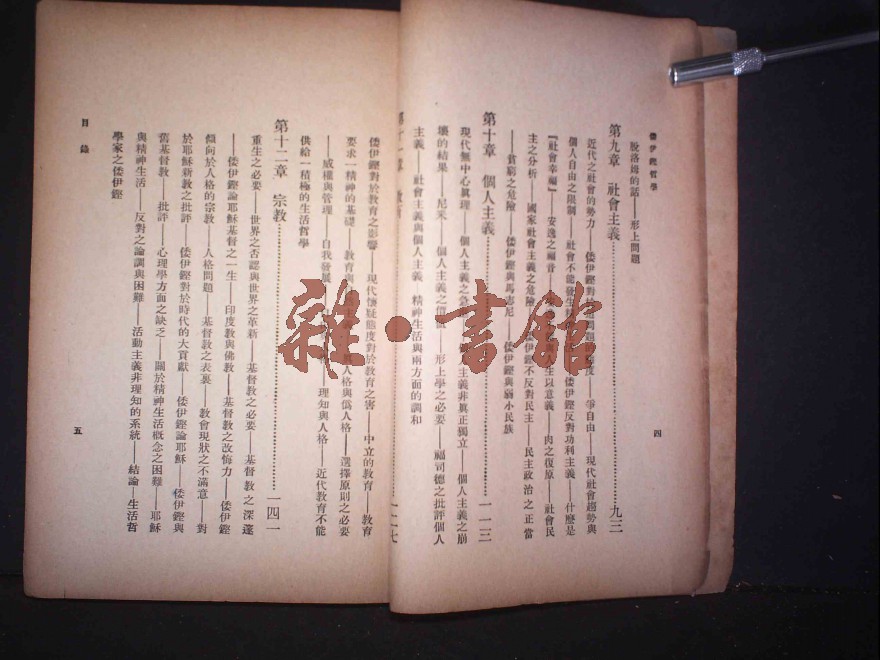 倭伊鏗哲學
四
脫洛姆的話——形上問題
第九章 社會主義 九三
近代之社會的勢力——倭伊鏗對 問題 度——爭自由——現代社會趨勢與
個人自由之限制——社會不能發生 倭伊鏗反對功利主義——什麼是
『社會幸福』——安逸之福音 人生以意義——肉之復原——社會民
主之分析——國家社會主義之危險 伊鏗不反對民主——民主政治之正當
——貧窮之危險——倭伊鏗與馬志尼——倭伊鏗與弱小民族
第十章 個人主義 一一三
現代無中心眞理——個人主義之危 主義非眞正獨立——個人主義之崩
壞的結果——尼采——個人主義之價值——形上學之必要——福司德之批評個人
主義——社會主義與個人主義——精神生活與兩方面的調和
第十一章 一二七
倭伊鏗對於教育之影響——現代懷疑態度對於教育之害——中立的教育——教育
要求一精神的基礎——教育與 人格與僞人格——選擇原則之必要
——威權與管理——自我發展 理知與人格——近代教育不能
供給一積極的生活哲學
第十二章 宗教 一四一
重生之必要——世界之否認與世界之革新——基督教之必要——基督教之深邃
——倭伊鏗論耶穌基督之一生——印度教與佛教——基督教之改悔力——倭伊鏗
傾向於人格的宗教——人格問題——基督教之表裏——教會現狀之不滿意——對
於耶穌新教之批評——倭伊鏗對於時代的大貢獻——倭伊鏗論耶穌——倭伊鏗與
舊基督教——批評——心理學方面之缺乏——關於精神生活概念之困難——耶穌
與精神生活——反對之論調與困難——活動主義非理知的系統——結論——生活哲
學家之倭伊鏗
目錄
五
雜·書館